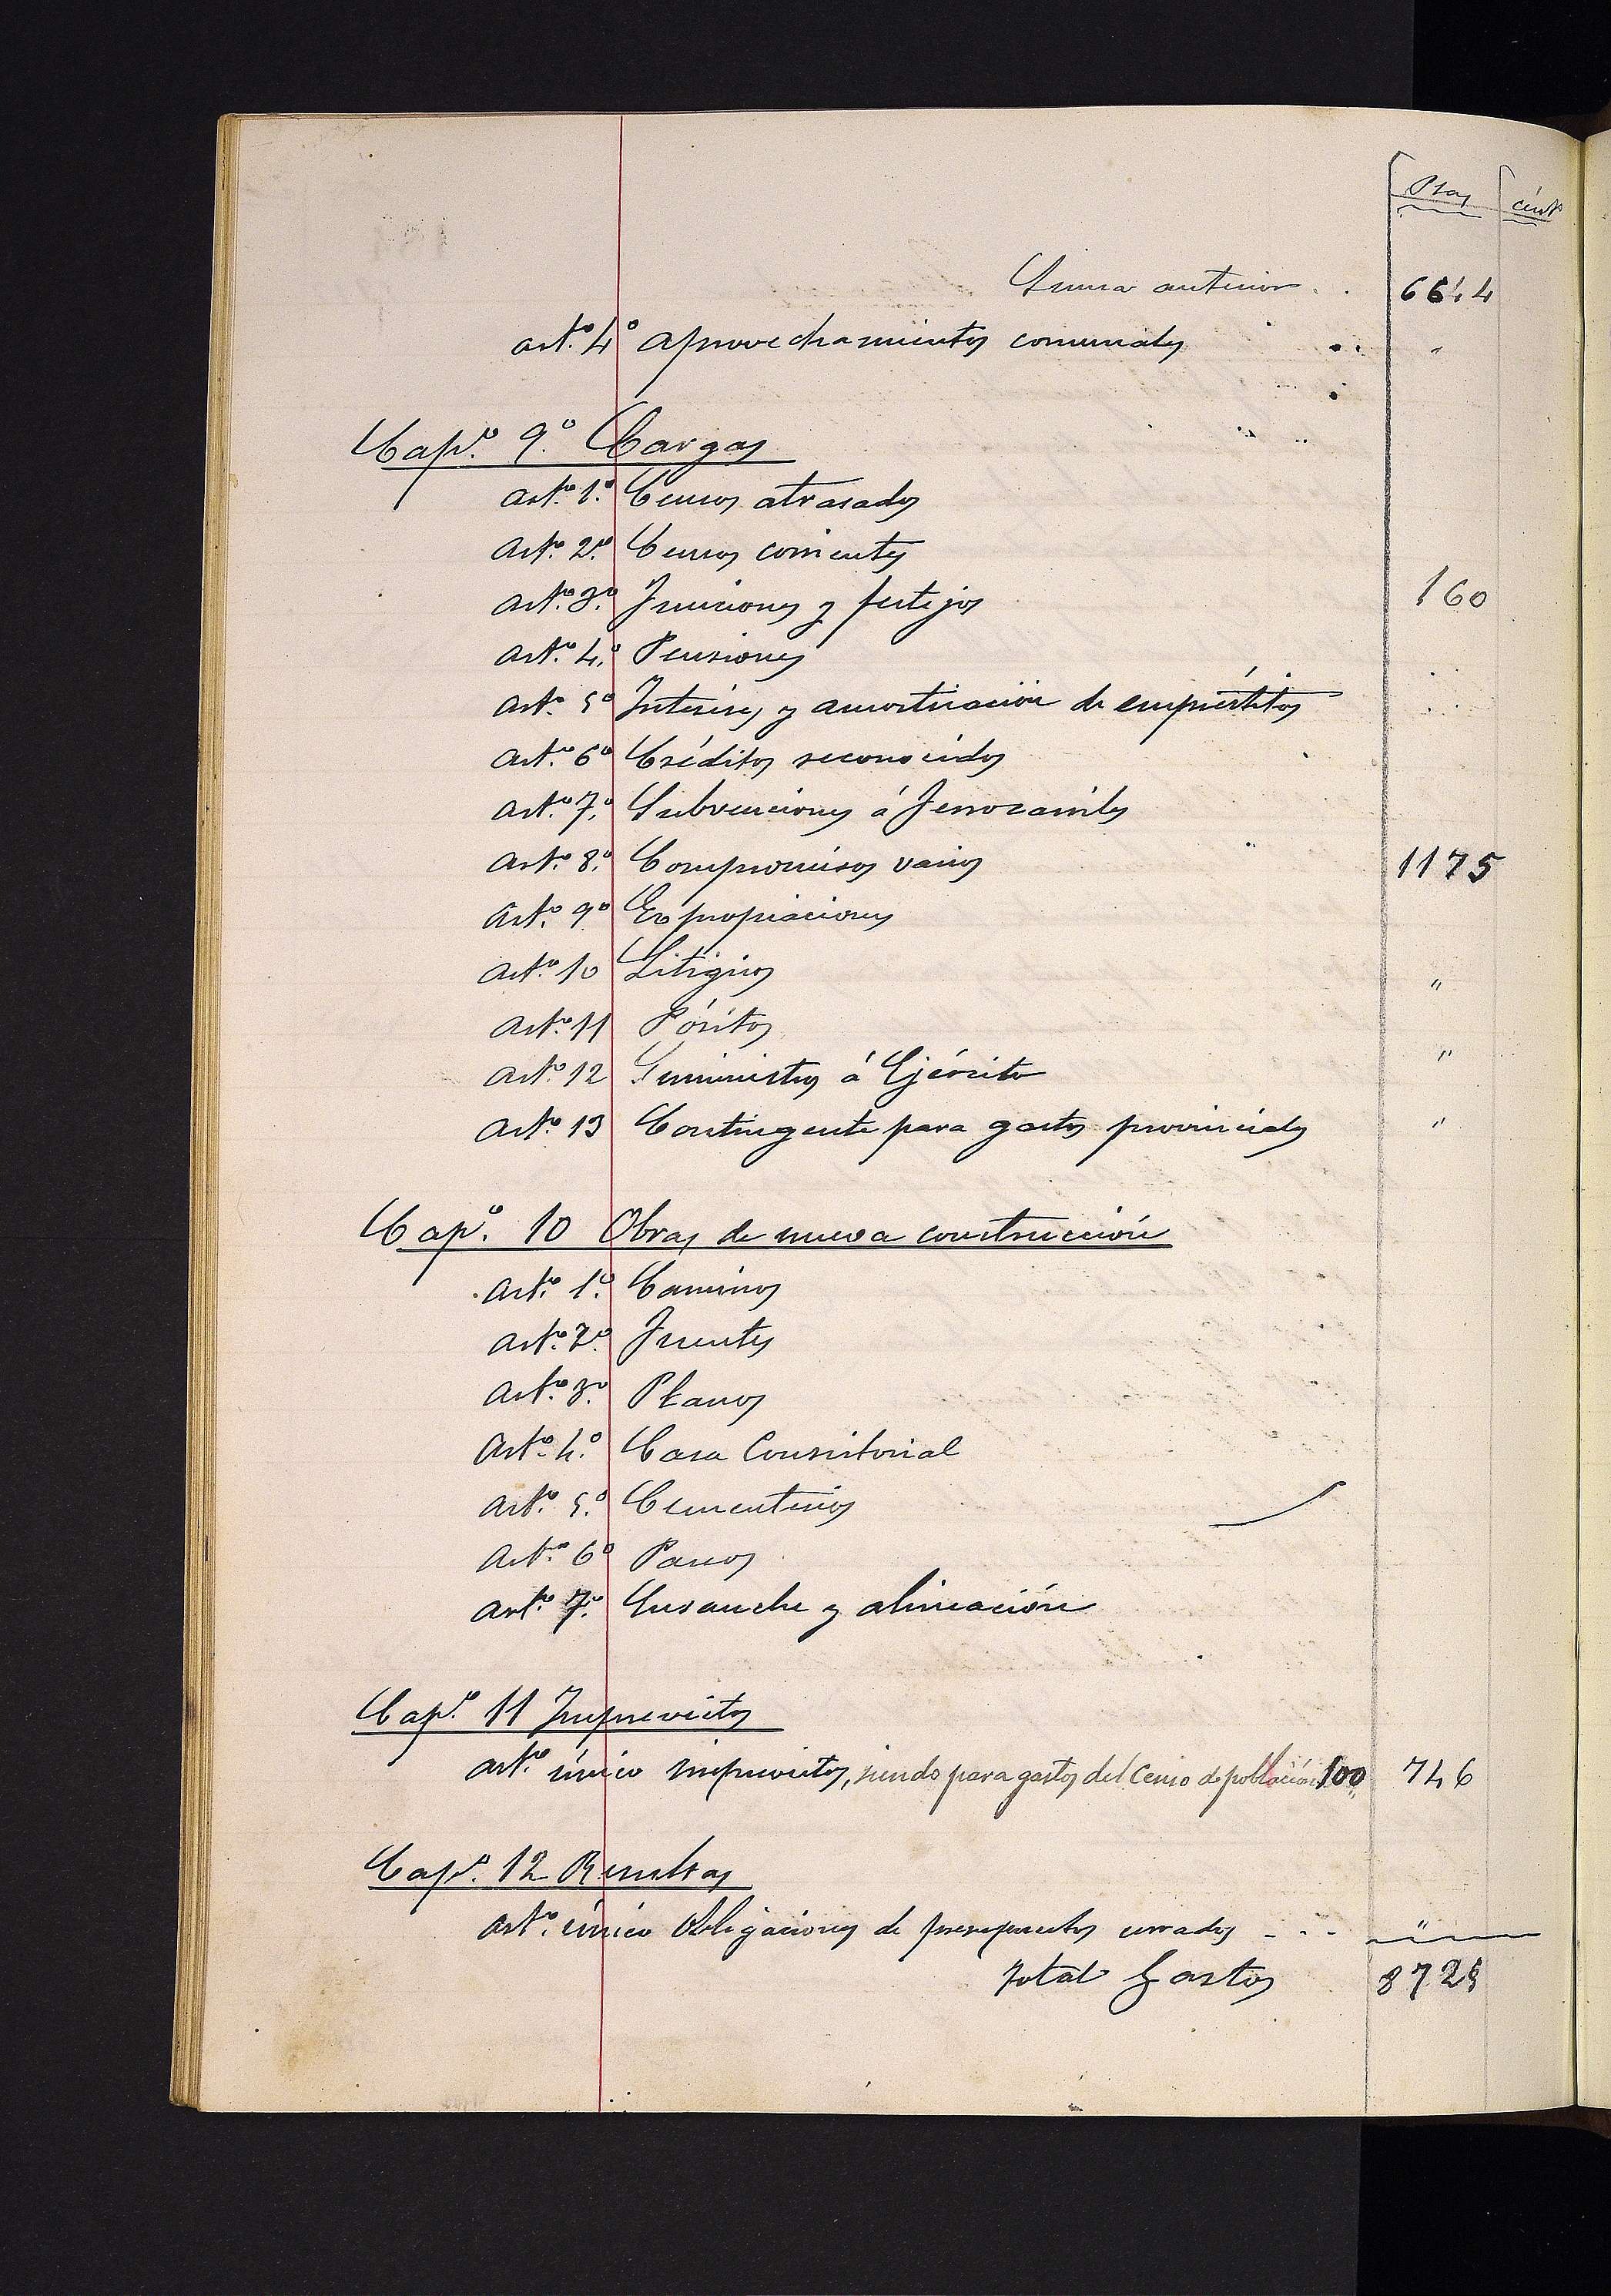 Ptas cénts
Suma anterior . . 6644
artº 4º aprovechamientos comunales . . "
Capº 9º Cargas
artº 1º Censos atrasados
Artº 2º Censos corrientes
Artº 3º Funciones y festejos 160
Artº 4º Pensiones
Artº 5º Intereses y amortización de empréstitos
Artº 6º Créditos reconocidos
Artº 7º Subvenciones á Ferrocarriles
Artº 8º Compromisos varios 1175
Artº 9º Expropiaciones
Artº 10 Litigios "
Artº 11 Pósitos
Artº 12 Suministros á Ejército "
Artº 13 Contingente para gastos provinciales "
Capº 10 Obras de nueva construcción
Artº 1º Caminos
Artº 2º Fuentes
Artº 3º Planos
Artº 4º Casa Consistorial
Artº 5º Cementerios
Artº 6º Paseos
Artº 7º Ensanche y alineación
Capº 11 Imprevistos
artº único imprevistos, siendo para gastos del Censo de población 100 746
Capº 12 Resultas
artº único Obligaciones de presupuestos cerrados - - - "
total Gastos